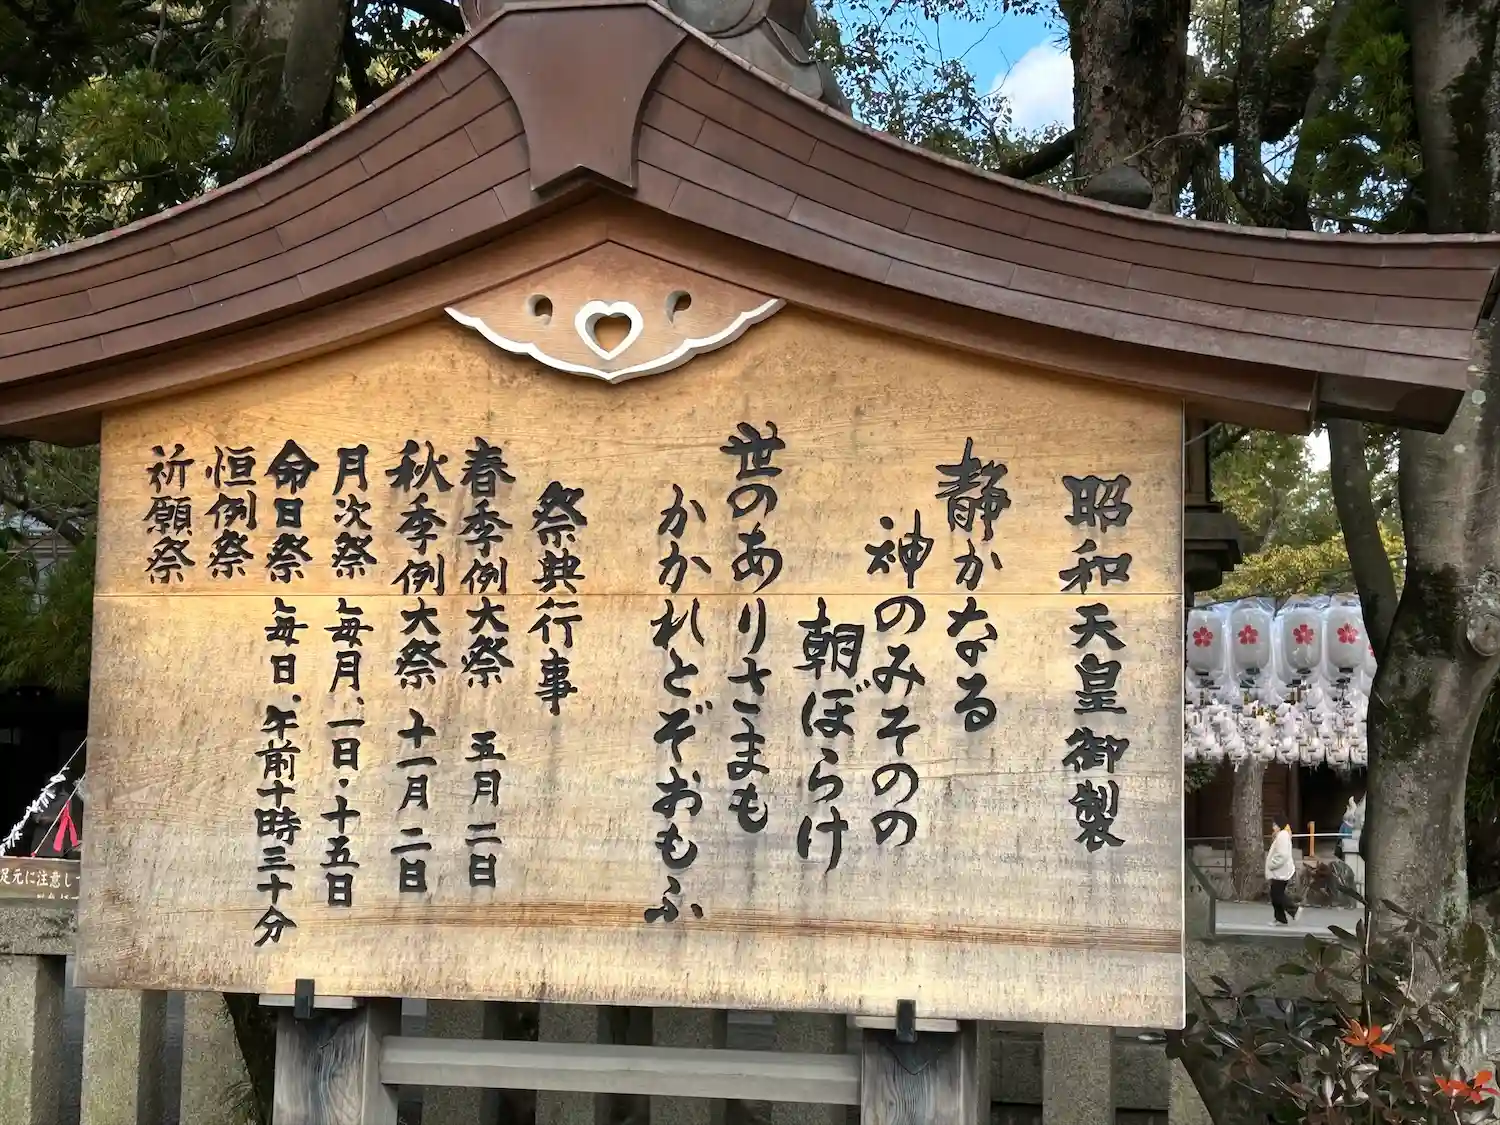 昭和天皇御製
静かなる
神のみそのの
朝ぼらけ
世のありさまも
かかれとぞおもふ
祭典行事
春季例大祭 五月二日
秋季例大祭 十一月二日
月次祭 毎月、一日・十五日
命日祭 毎日、午前十時三十分
恒例祭
祈願祭
足元に注意し